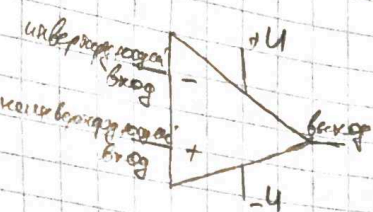 инвертирующий
вход
-
+U
неинвертирующий
вход
+
выход
-U